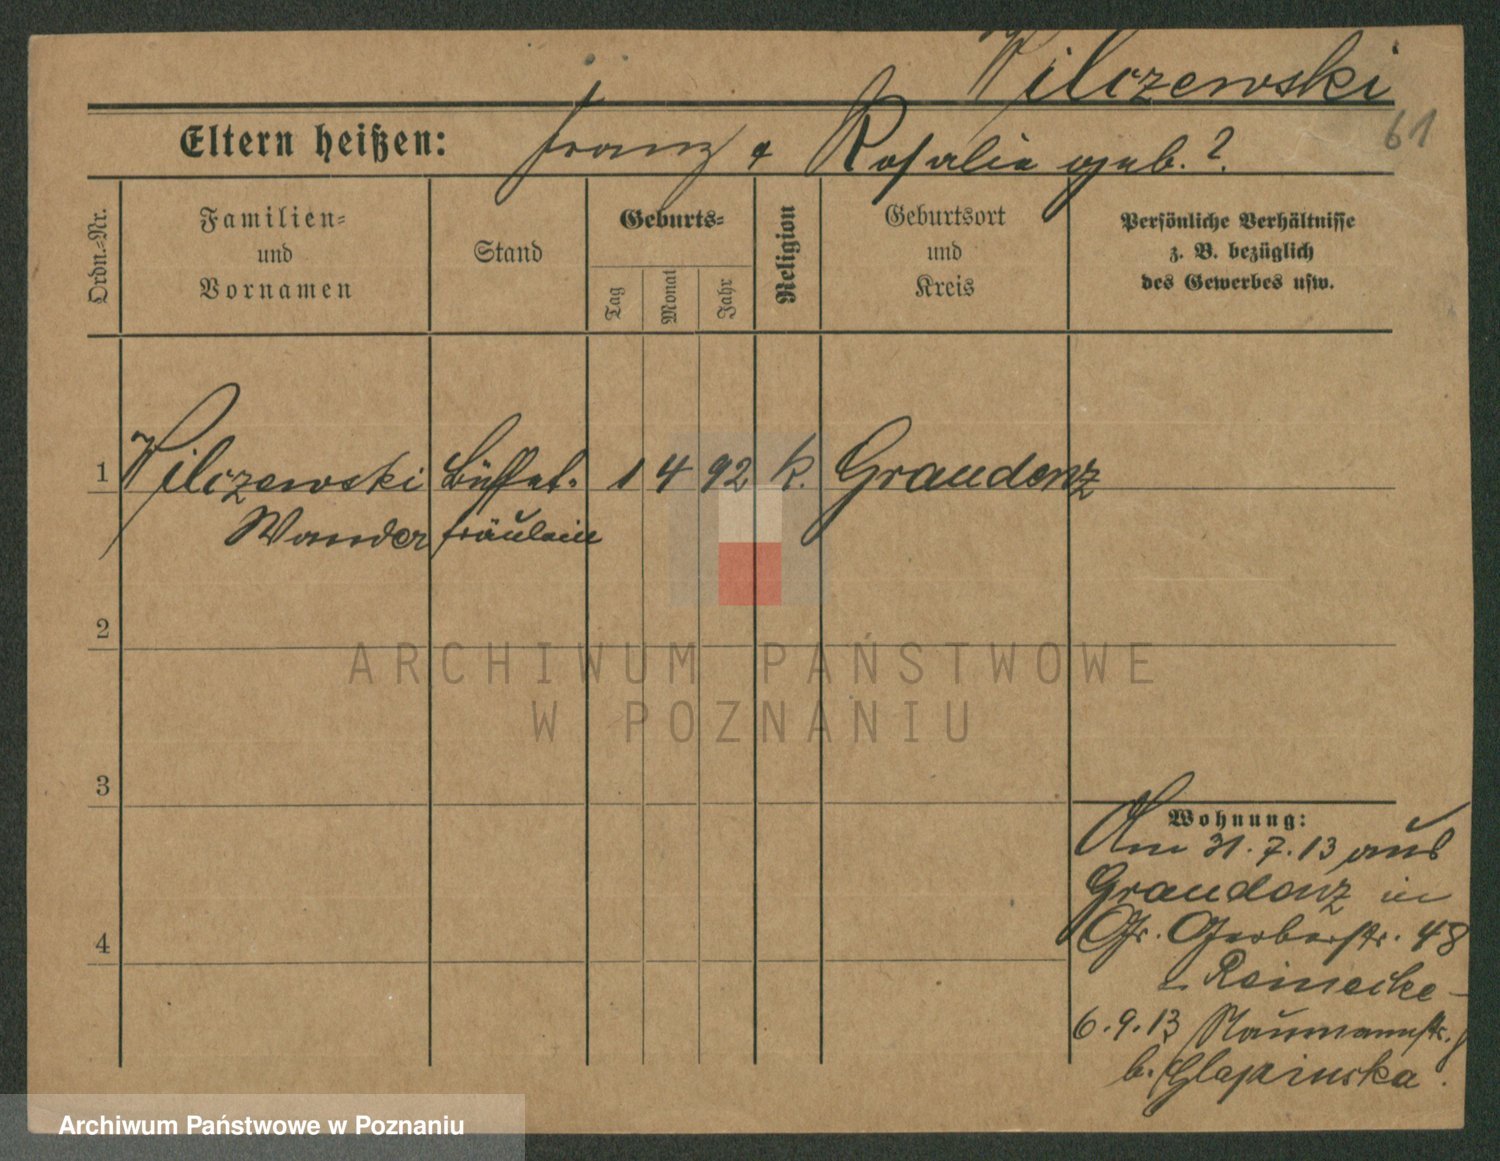 Wilczewski
61
Eltern heißen: Franz & Rosalie geb. ?.
Ordn.-Nr.
Familien-
und
Vornamen
Stand
Geburts-
Tag
Monat
Jahr
Religion
Geburtsort
und
Kreis
Persönliche Verhältnisse
z. B. bezüglich
des Gewerbes usw.
1 Wilczewski Büffet- 1 4 92 k. Graudenz
Wander fräulein
2
ARCHIWUM PAŃSTWOWE
W POZNANIU
3
Wohnung:
Am 31.7.13 aus
Graudenz in
Gr. Gerberstr. 48
Reinecke
4
6.9.13 Naumannstr.
b. Glapinska.
Archiwum Państwowe w Poznaniu